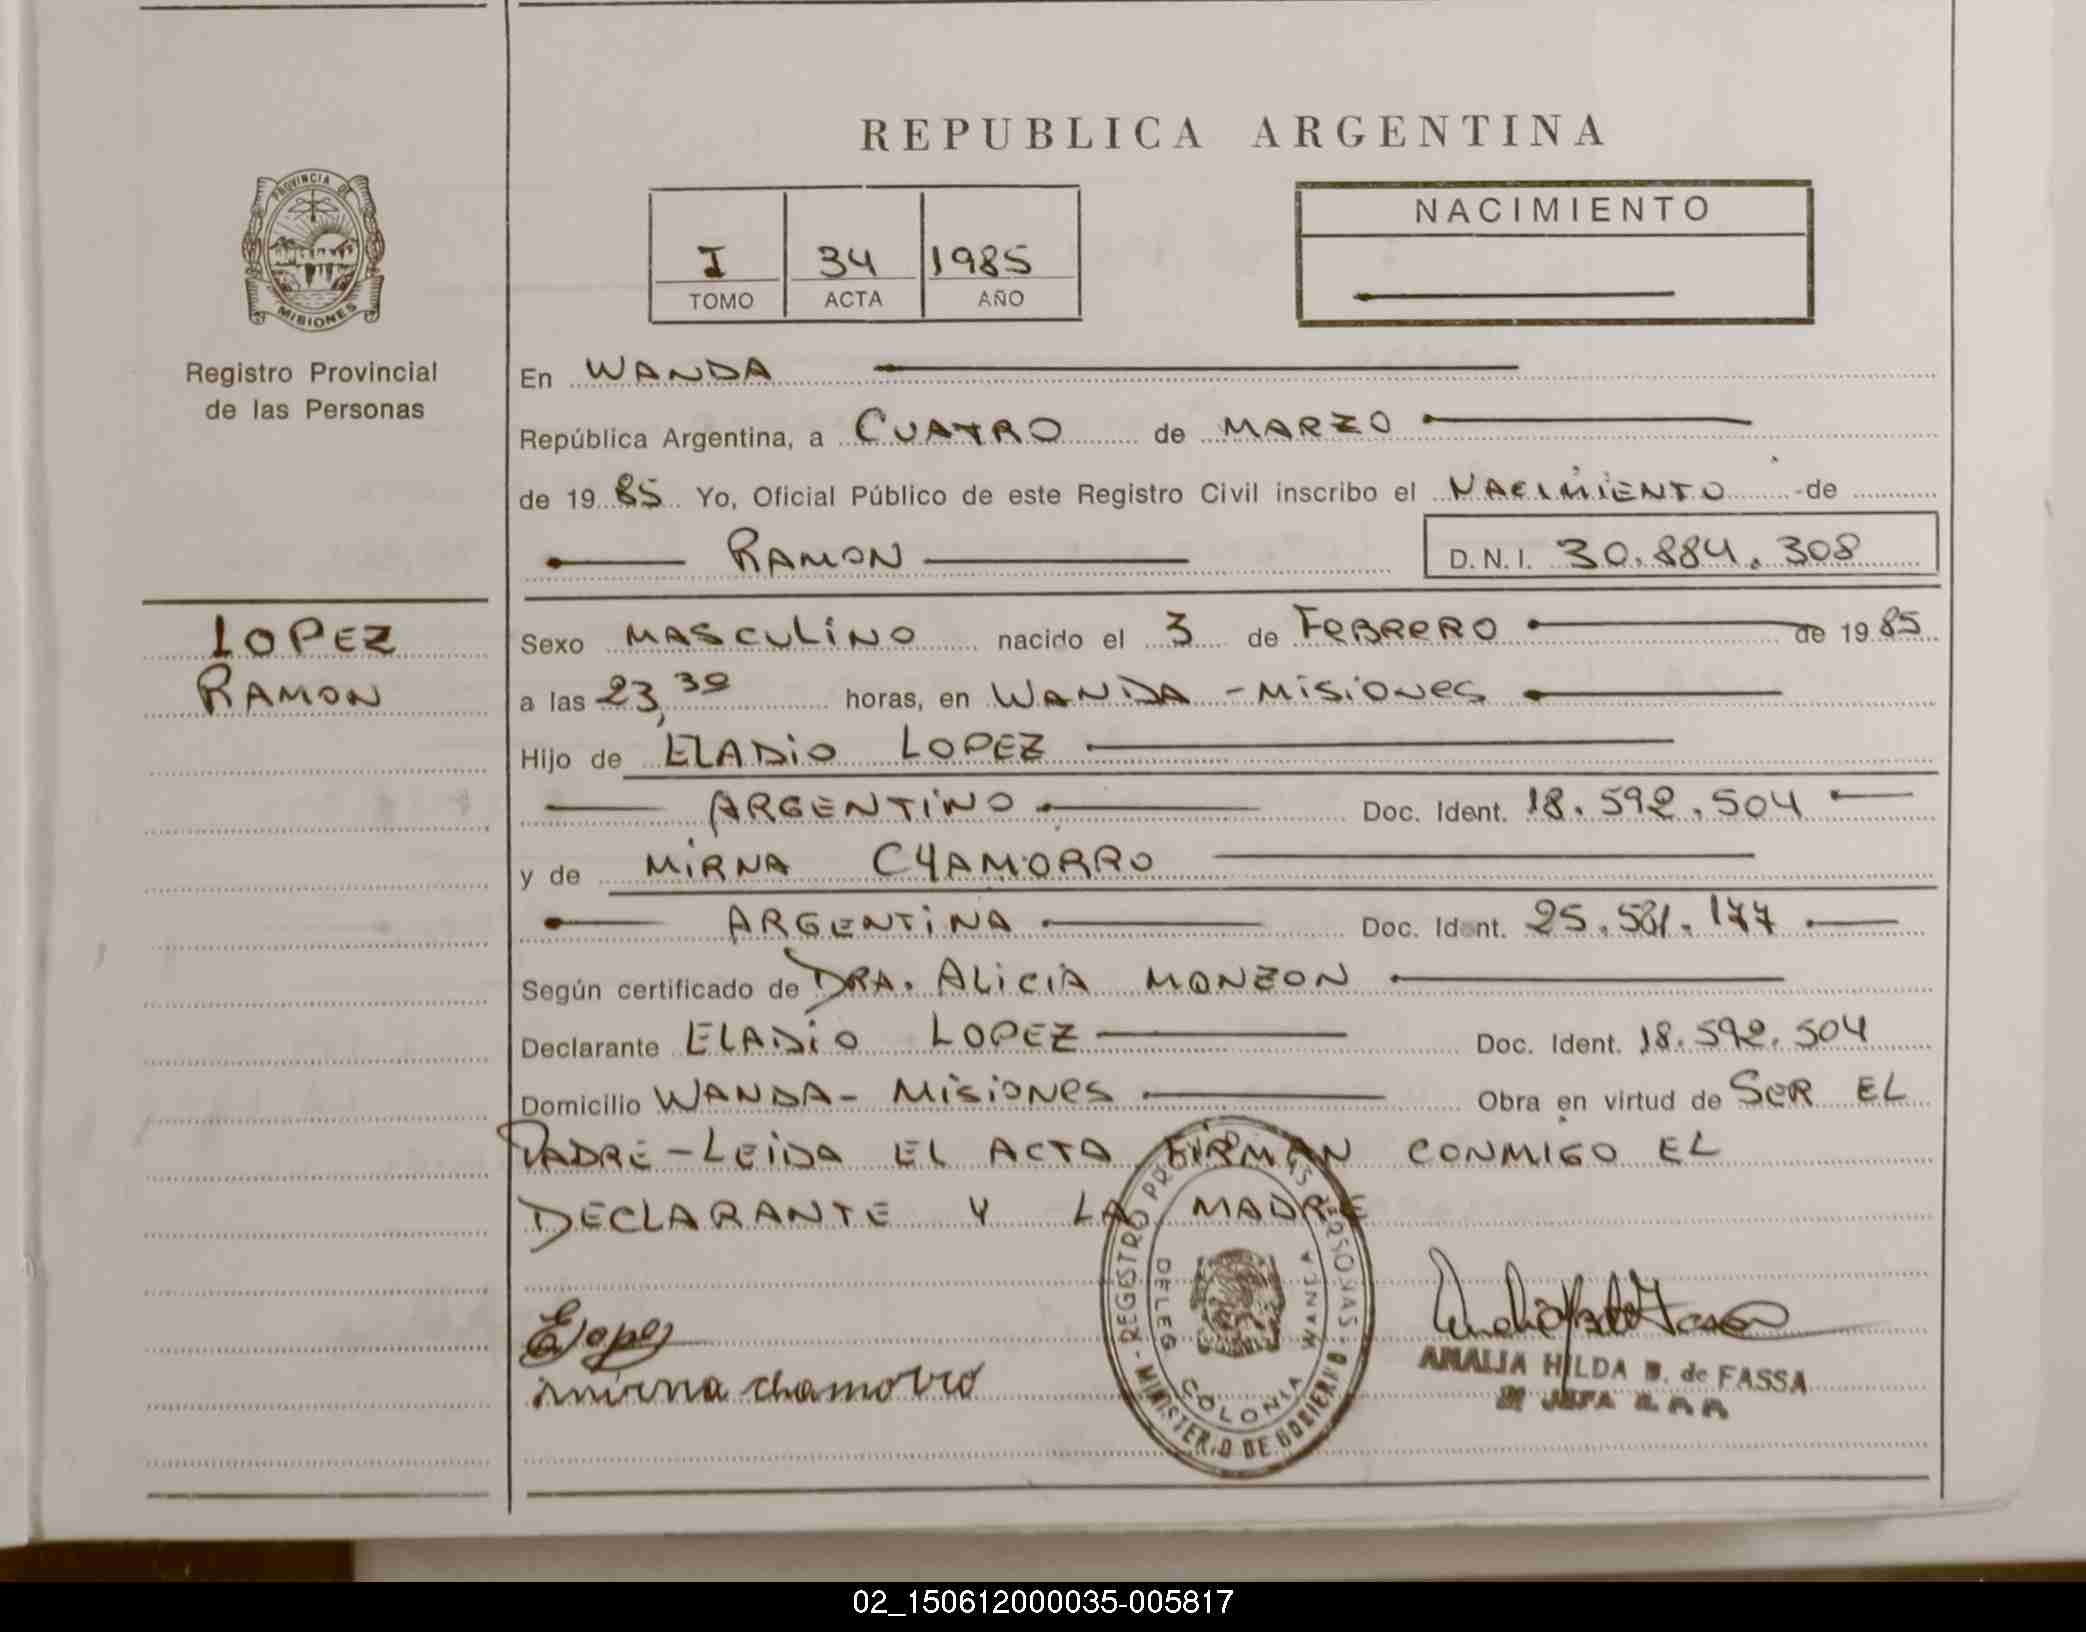 REPUBLICA ARGENTINA
PROVINCIA DE
MISIONES
Registro Provincial
de las Personas
I 34 1985
TOMO ACTA AÑO
NACIMIENTO
En WANDA
República Argentina, a CUATRO de MARZO
de 19 85 Yo, Oficial Público de este Registro Civil inscribo el NACIMIENTO de
RAMON D.N.I. 30.884.308
LOPEZ
RAMON
Sexo MASCULINO nacido el 3 de FEBRERO de 19 85
a las 23,30 horas, en WANDA - MISIONES
Hijo de ELADIO LOPEZ
ARGENTINO Doc. Ident. 18.592.504
y de MIRNA CHAMORRO
ARGENTINA Doc. Ident. 25.581.177
Según certificado de DRA. ALICIA MONZON
Declarante ELADIO LOPEZ Doc. Ident. 18.592.504
Domicilio WANDA - MISIONES Obra en virtud de SER EL
PADRE - LEIDA EL ACTA FIRMAN CONMIGO EL
DECLARANTE Y LA MADRE
E Lopez
mirna chamorro
DELEG
COLONIA WANDA
MINISTERIO DE GOBIERNO
AMALIA HILDA B. de FASSA
02_150612000035-005817